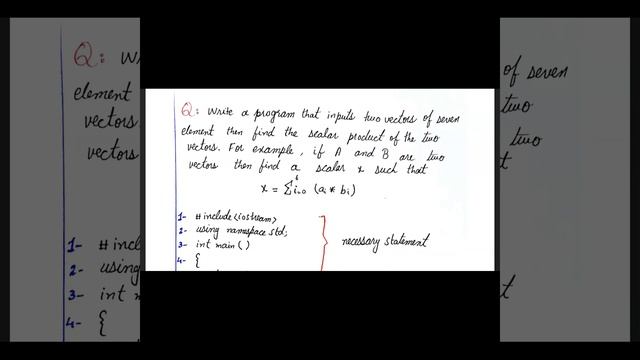 Q: Write a program that inputs two vectors of seven
element then find the scalar product of the two
vectors. For example, if A and B are two
vectors then find a scaler x such that
x = Σ⁶i=0 (ai * bi)
1- #include<iostream>
2- using namespace std;
3- int main()
4- {
necessary statement